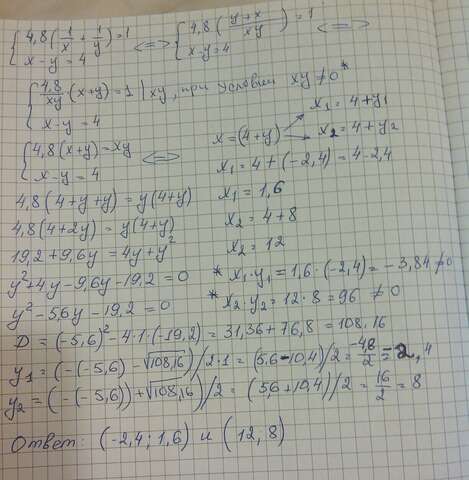 { 4,8(1/x + 1/y) = 1 <=> { 4,8((y+x)/xy) = 1 <=>
x-y = 4 x-y = 4
{ 4,8/xy · (x+y) = 1 | xy, при условии xy ≠ 0*
x-y = 4
{ 4,8(x+y) = xy <=>
x-y = 4
x = (4+y)
x₁ = 4+y₁
x₂ = 4+y₂
4,8(4+y+y) = y(4+y)
4,8(4+2y) = y(4+y)
19,2 + 9,6y = 4y + y²
y² + 4y - 9,6y - 19,2 = 0
y² - 5,6y - 19,2 = 0
x₁ = 4 + (-2,4) = 4 - 2,4
x₁ = 1,6
x₂ = 4 + 8
x₂ = 12
* x₁·y₁ = 1,6·(-2,4) = -3,84 ≠ 0
* x₂·y₂ = 12·8 = 96 ≠ 0
D = (-5,6)² - 4·1·(-19,2) = 31,36 + 76,8 = 108,16
y₁ = (-(-5,6) - √108,16)/2·1 = (5,6 - 10,4)/2 = -4,8/2 = -2,4
y₂ = (-(-5,6)) + √108,16)/2 = (5,6 + 10,4)/2 = 16/2 = 8
Ответ: (-2,4; 1,6) и (12; 8)